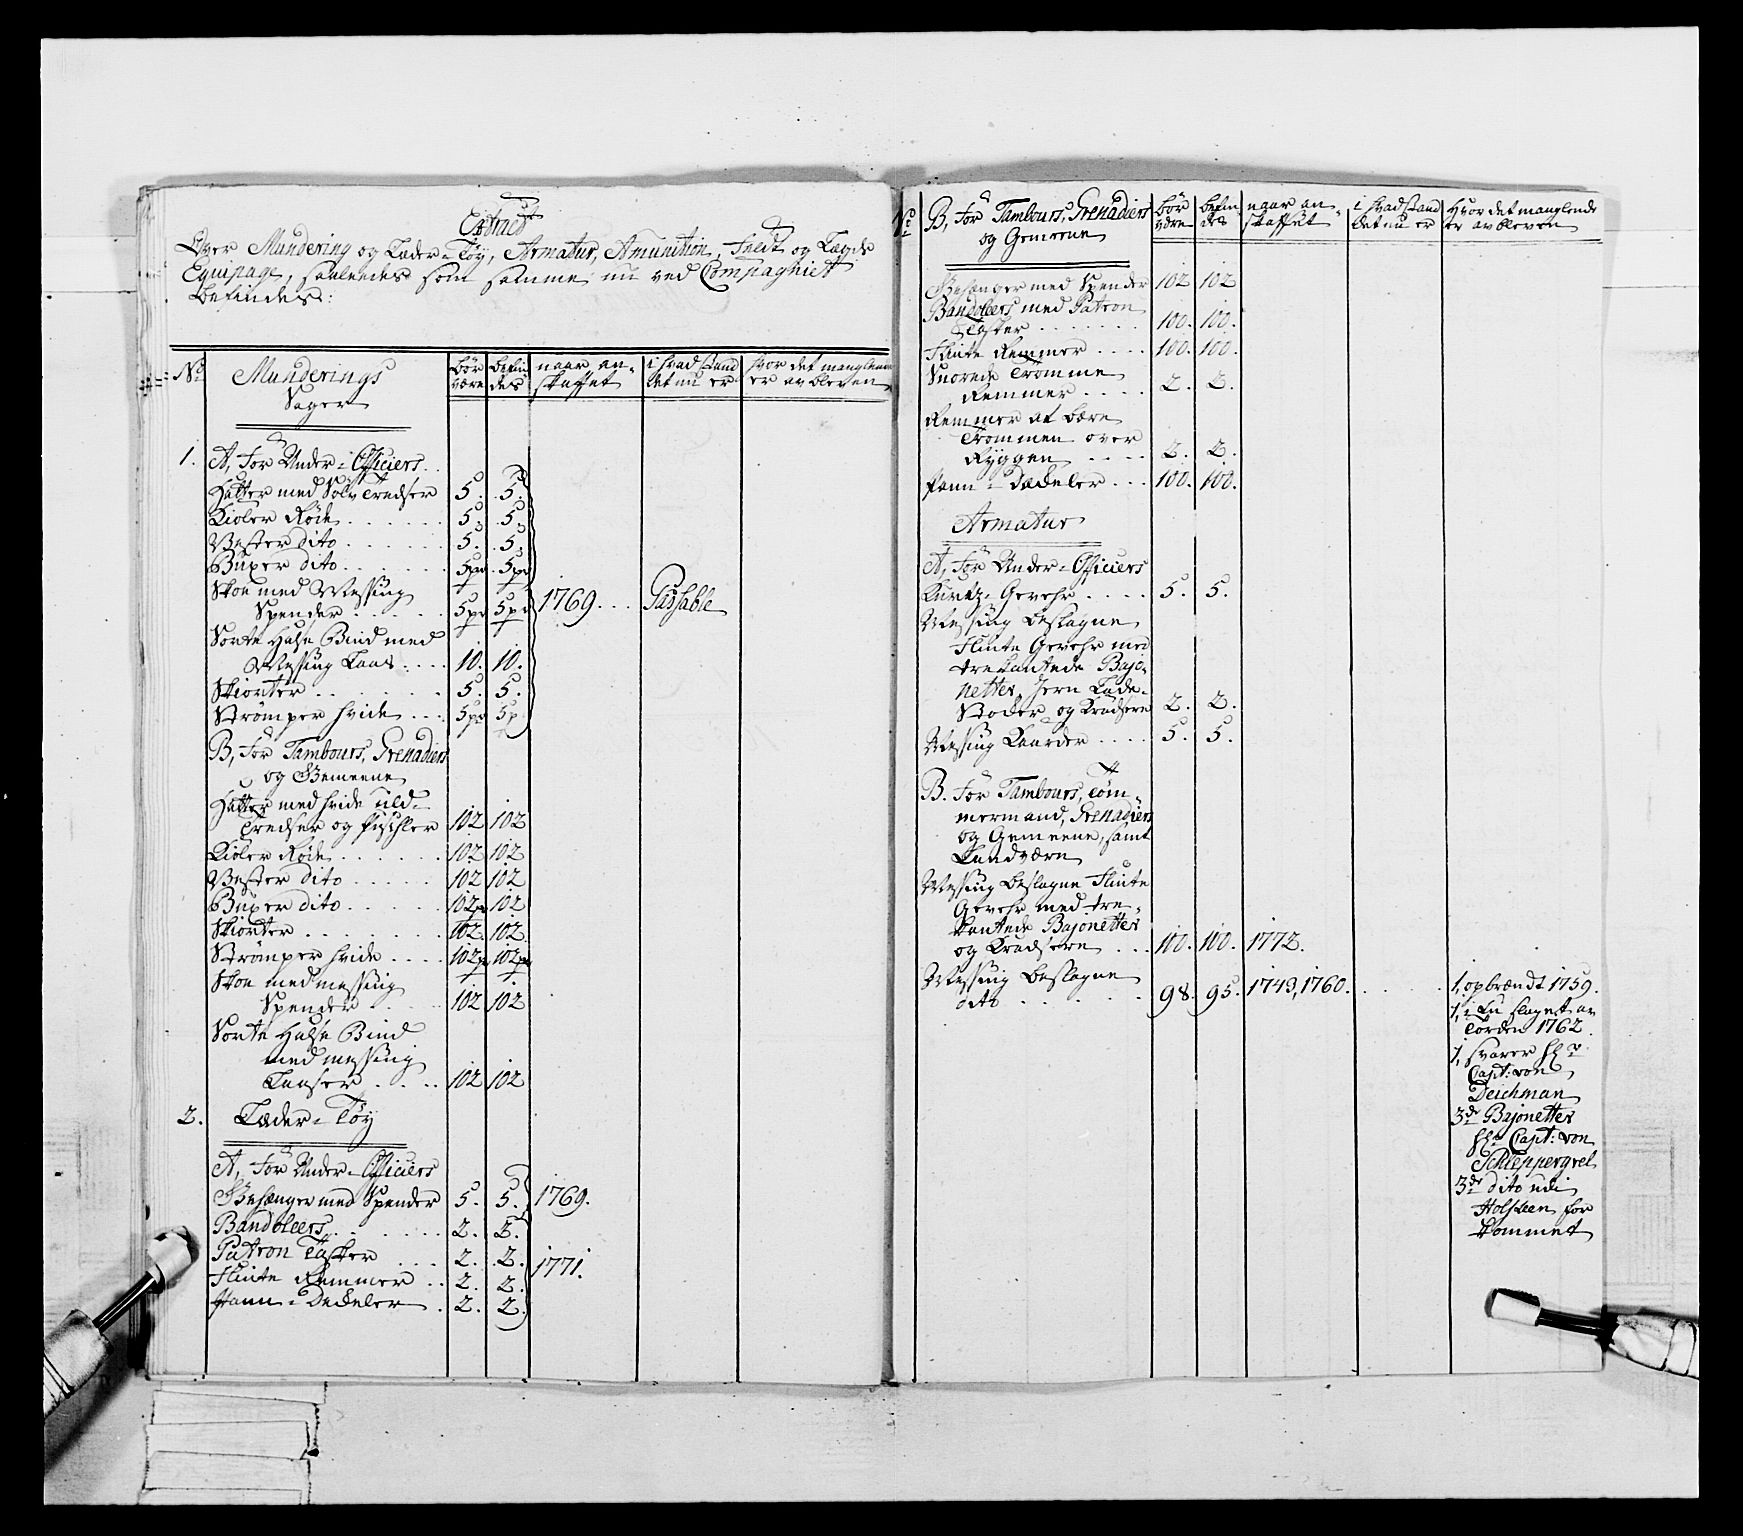 Extract
Over Mundering og Læder-Tøy, Armatur, Amunition, Feldt og Lægds
Equipage, saaledes som samme nu ved Compagniet
befindes:
No Munderings Sager | bör være | befindes | naar anskaffet | i hvad stand det nu er | hvor det manglende er avbleven
1. A, For Under-Officiers
Hatter med Sölv Tredser 5. 5.
Kioler Röde 5. 5.
Vester dito 5. 5.
Buxer dito 5pr 5pr
Skoe med Messing
Spender 5pr 5pr 1769. Passable
Sorte Halse Bind med
Messing Laas 10. 10.
Skiorter 5. 5.
Strömper hvide 5pr 5p
B, For Tambours, Grenadiers
og Gemeene
Hatter med hvide Uld-
Tredser og Puschler 102 102
Kioler Röde 102 102
Vester dito 102 102
Buxer dito 102pr 102
Skiorter 102. 102.
Strömper hvide 102p 102pr
Skoe med messing
Spender 102 102
Sorte Halse Bind
med messing
Laaser 102 102
2. Læder-Töy
A, For Under-Officiers
Gehænger med Spender 5. 5. 1769.
Bandoleers 2. 2.
Patron Tasker 2. 2. 1771.
Flinte Remmer 2. 2.
Pann-Dedeler 2. 2.
No B, For Tambours, Grenadiers og Gemeene | bör være | befindes | naar anskaffet | i hvad stand det nu er | Hvor det manglende er avbleven
Gehænger med Spender 102 102
Bandoleers med Patron
Tasker 100. 100.
Flinte Remmer 100. 100.
Snorede Tromme
Remmer 2. 2.
Remmer at bære
Trommen over
Ryggen 2. 2.
Pann-Dædeler 100. 100.
Armatur
A, For Under-Officiers
Kurtz-Gevehr 5. 5.
Messing beslagne
Flinte Gevehr med
trekantede Bajo-
netter, Jern Lade-
Stoder og Kradsere 2. 2.
Messing Kaarder 5. 5.
B. For Tambours, Töm-
mermænd, Grenadiers
og Gemeene, samt
Landværn
Messing beslagne Flinte
Gevehr med tre-
kantede Bajonetter
og Kradsere 100. 100. 1772.
Messing beslagne
dito 98. 95. 1743, 1760.
1, opbrændt 1759.
1, i Lu slaget av
Torden 1762.
1, svarer Hr
Capt: von
Deichman
3de Bajonetter
Hr Capt: von
Schleppergrel
3de dito udi
Holsteen for
kommet